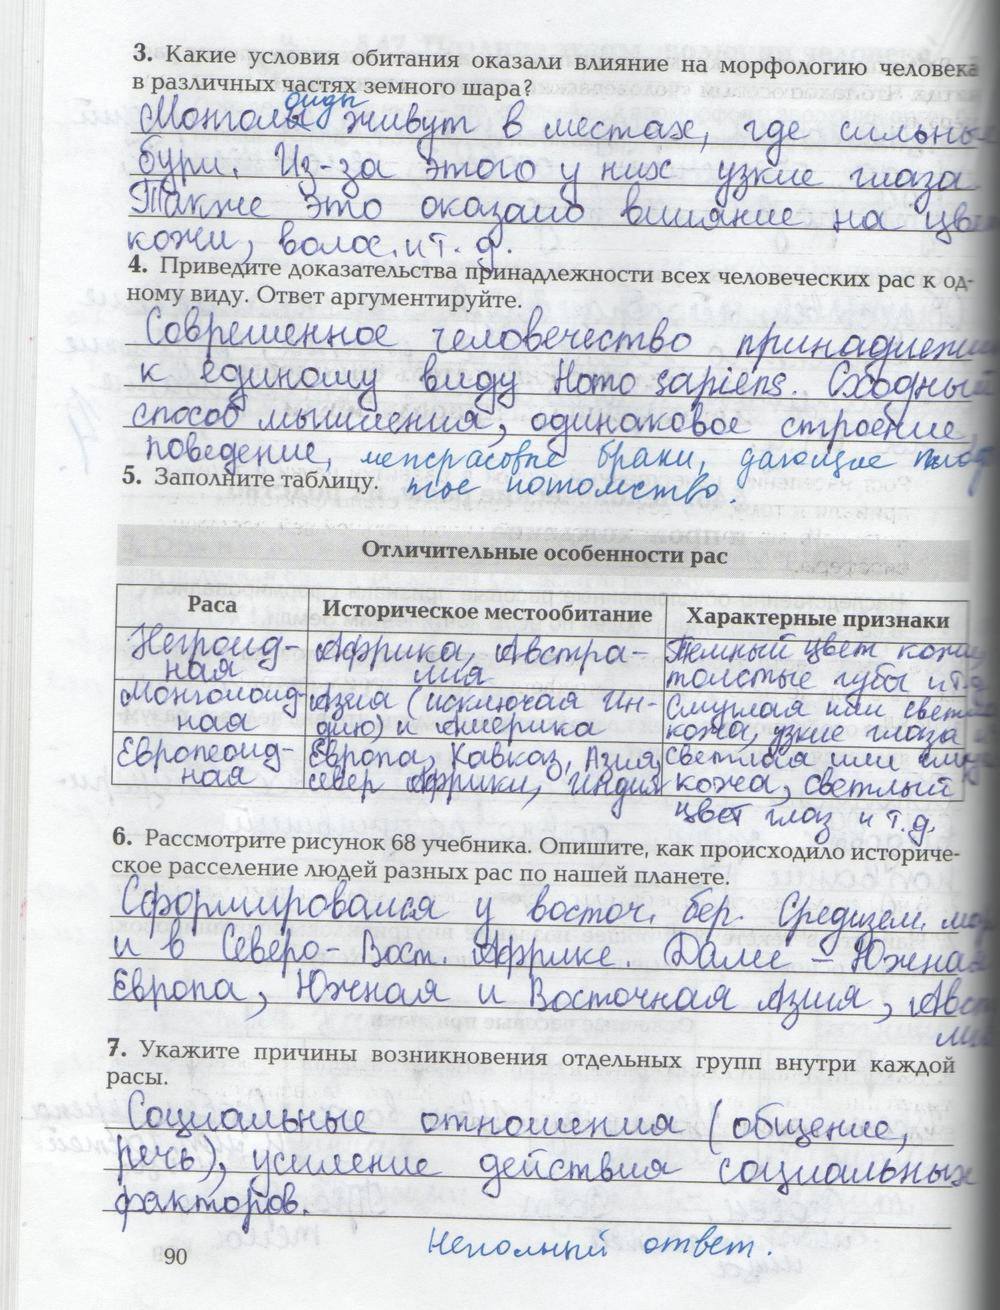 3. Какие условия обитания оказали влияние на морфологию человека
в различных частях земного шара?
оиды
Монголы живут в местах, где сильные
бури. Из-за этого у них узкие глаза
Также это оказало влияние на цвет
кожи, волос. и т. д.
4. Приведите доказательства принадлежности всех человеческих рас к од-
ному виду. Ответ аргументируйте.
Современное человечество принадлежит
к единому виду Homo sapiens. Сходный
способ мышления, одинаковое строение,
поведение, межрасовые браки, дающие плодо
5. Заполните таблицу. тое потомство.
Отличительные особенности рас
Раса Историческое местообитание Характерные признаки
Негроид- Африка, Австра- Темный цвет кожи,
ная лия толстые губы и т.д
Монголоид- Азия (исключая Ин- Смуглая или светлая
ная дию) и Америка кожа, узкие глаза
Европеоид- Европа, Кавказ, Азия, Светлая или смуглая
ная север Африки, Индия кожа, светлый
цвет глаз и т.д.
6. Рассмотрите рисунок 68 учебника. Опишите, как происходило историче-
ское расселение людей разных рас по нашей планете.
Сформировался у восточ. бер. Средизем. мор
и в Северо-Вост. Африке. Далее – Южная
Европа, Южная и Восточная Азия, Австра
лия
7. Укажите причины возникновения отдельных групп внутри каждой
расы.
Социальные отношения (общение,
речь), усиление действия социальных
факторов.
Неполный ответ.
90